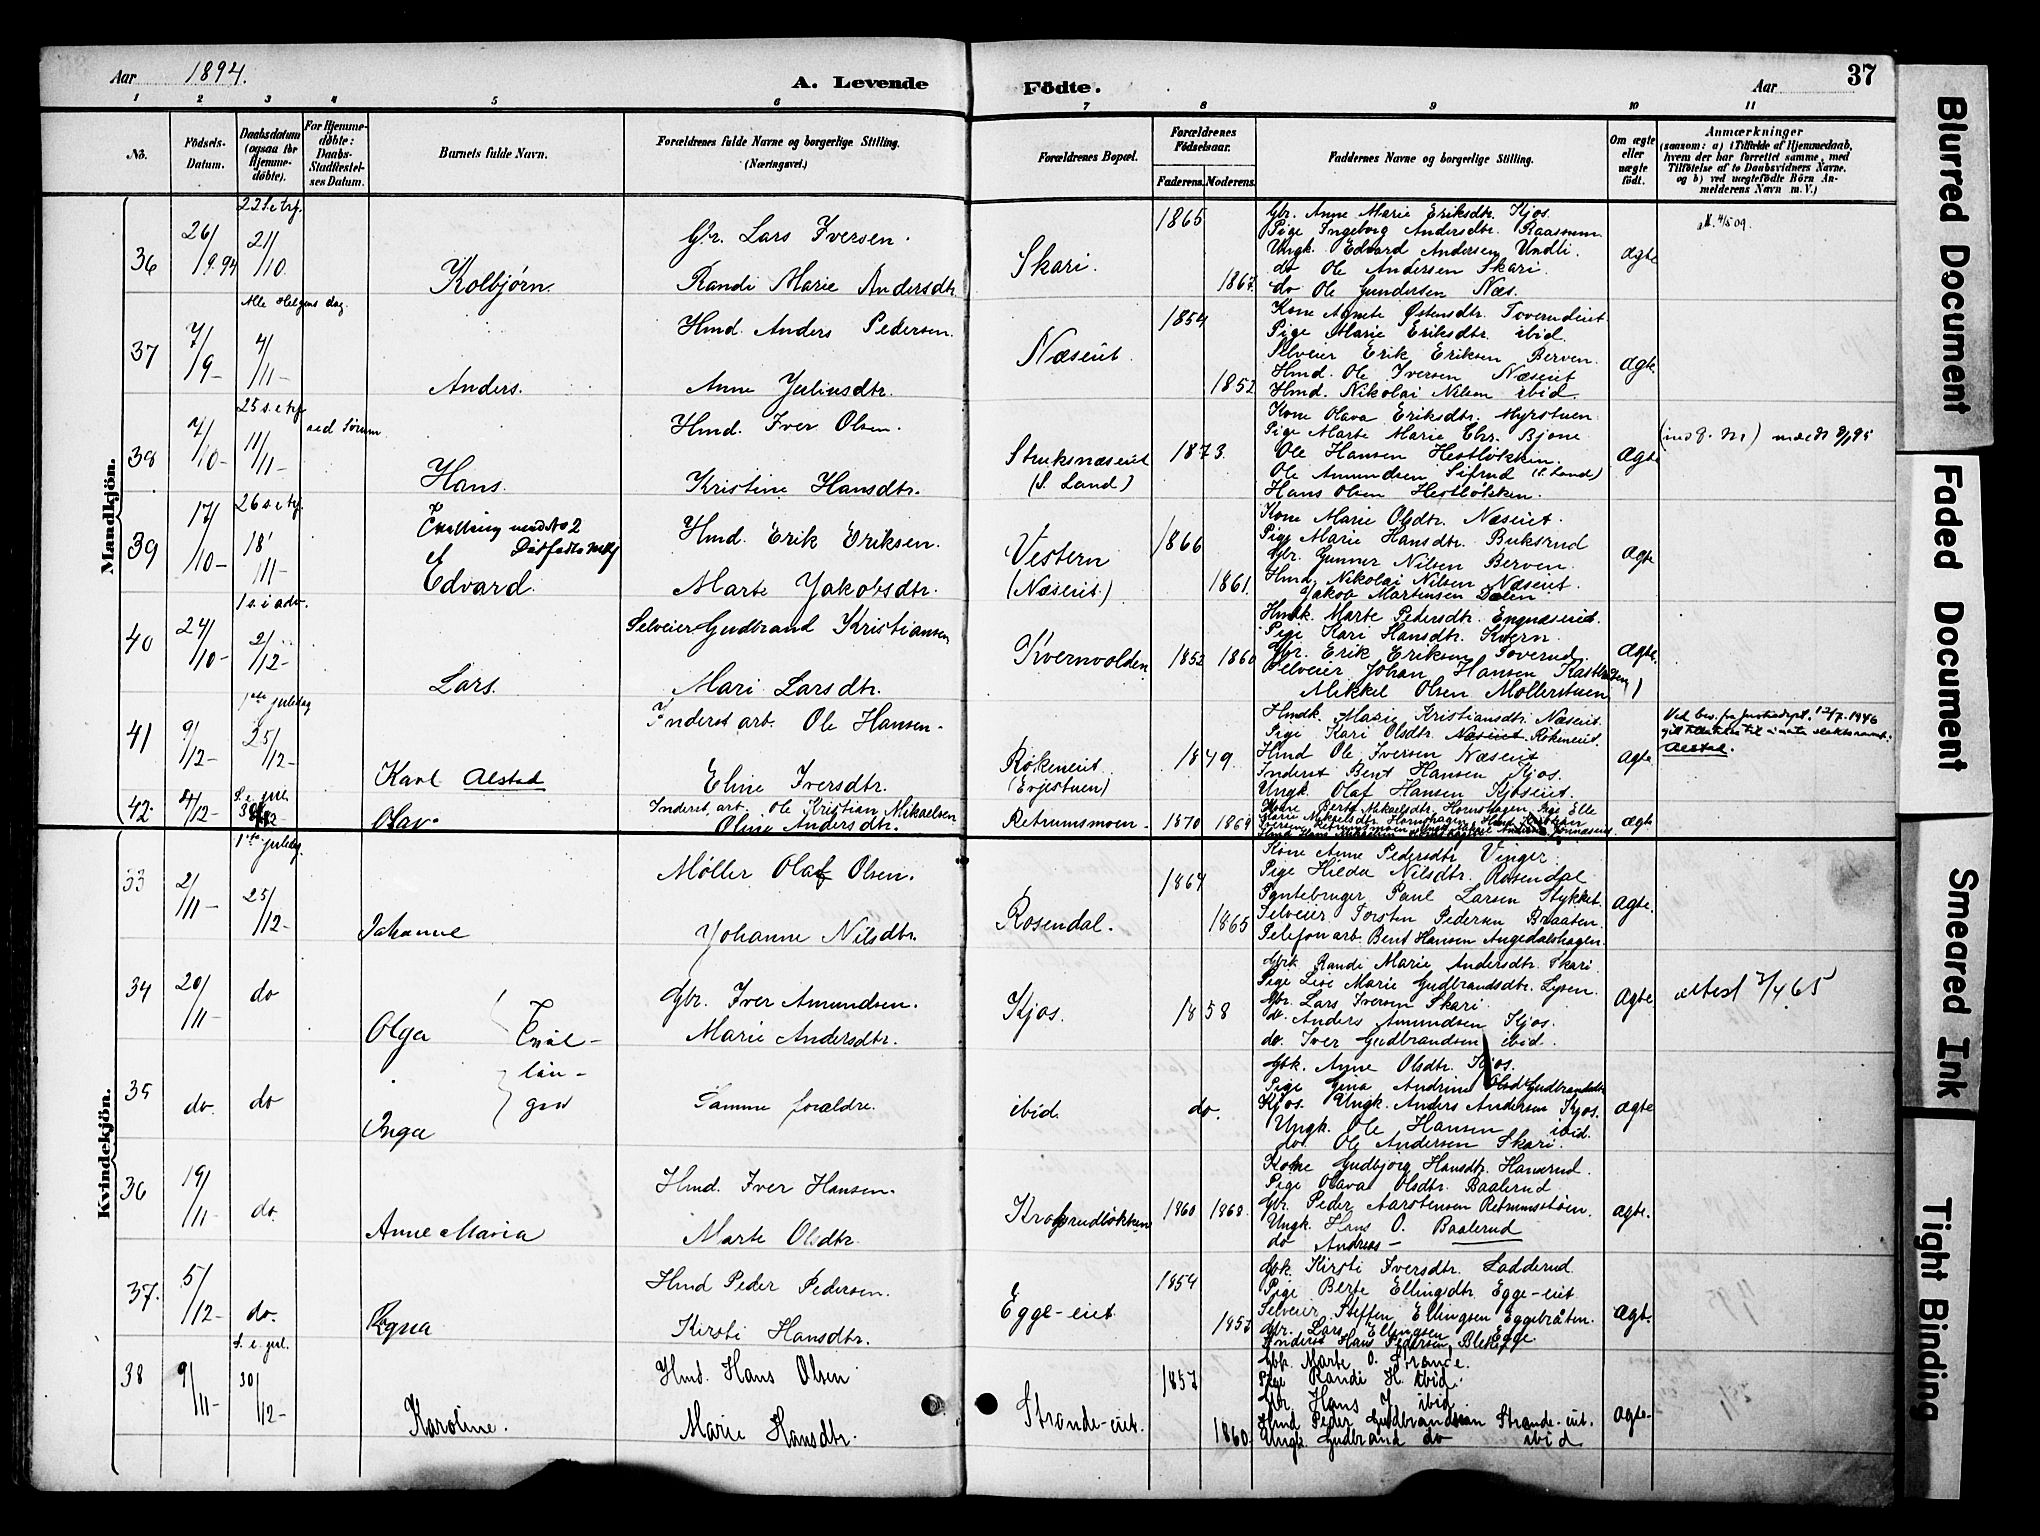 Aar 1894.
A. Levende Födte.
Aar
37
1 2 3 4 5 6 7 8 9 10 11
No.
Födsels-Datum.
Daabsdatum (ogsaa for Hjemme-döbte).
For Hjemme-döbte: Daabs-Stadfæstel-ses Datum.
Barnets fulde Navn.
Forældrenes fulde Navne og borgerlige Stilling. (Næringsvei.)
Forældrenes Bopæl.
Forældrenes Födselsaar.
Faderens. Moderens.
Faddernes Navne og borgerlige Stilling.
Om ægte eller uægte födt.
Anmærkninger
(saasom: a) i Tilfælde af Hjemmedaab, hvem der har forrettet samme, med Tilföielse af to Daabsvidners Navne, og b) ved uægtefödte Börn An-melderens Navn m. V.)
Mandkjön.
36
26/9.94
22 S. e. trf.
21/10.
Kolbjørn.
Gbr. Lars Iversen.
Randi Marie Andersdtr.
Skari.
1865
1867.
Gbr. Anne Marie Eriksdtr. Kjos.
Pige Ingeborg Andersdtr. Raassum
Ungk. Edvard Andersen Undli.
do Ole Andersen Skari.
do Ole Gundersen Næs.
Ægte
37
7/9-
Alle Helgens dag.
4/11-
Anders.
Hmd. Anders Pedersen.
Anne Juliusdtr.
Næseiet.
1854
1852
Kone Agnete Østensdtr. Toverudeiet.
Pige Marie Eriksdtr. ibid.
Selveier Erik Eriksen Berven.
Hmd. Ole Iversen Næseiet
Hmd. Nikolai Nilsen ibid.
Ægte.
38
7/10-
25 s. e. trf.
11/11-
ved Sørum
Hans.
Hmd. Iver Olsen.
Kristine Hansdtr.
Struksnæseiet
(S. Land)
1873.
Kone Olava Eriksdtr. Myrstuen.
Pige Marte Marie Chr. Bjone
Ole Hansen Hestløkken.
Ole Amundsen Sifrud (S. Land)
Hans Olsen Hestløkken.
Ægte
39
17/10-
26 s. e. trf.
18/11-
Tvilling med No 2
Dødfødte
Edvard.
Hmd. Erik Eriksen.
Marte Jakobsdtr.
Vestern
(Næseiet.)
1866
1861.
Kone Marie Olsdtr. Næseiet.
Pige Marie Hansdtr. Buksrud
Gbr. Gunner Nilsen Berven.
Hmd. Nikolai Nilsen Næseiet.
Jakob Martinsen Dalen
Ægte
40
24/10-
1 s. i adv.
2/12-
Lars.
Selveier Gudbrand Kristiansen
Mari Larsdtr.
Kvernvolden
1852 1860
Hmdk. Marte Pedersdtr. Engnæseiet.
Pige Kari Hansdtr. Kvern.
Gbr. Erik Eriksen Toverud.
Selveier Johan Hansen
Mikkel Olsen Møllerstuen
Ægte.
41
9/12-
1ste juledag
25/12-
Karl Alstad
Inderst arb. Ole Hansen-
Eline Iversdtr.
Røkeneiet.
(Evjestuen)
1849.
Hmdk. Marie Kristiansdtr. Næseiet.
Pige Kari Olsdtr. Næseiet Røkeneiet.
Hmd Ole Iversen Næseiet
Inderst Bent Hansen Kjos.
Ungk. Olaf Hansen Kjoseiet.
Ægte
Ved bev. fra Justisdept. 12/7. 1946
Alstad.
42.
4/12-
S. e. jul.
30/12
Olav.
Inderst, arb. Ole Kristian Mikaelsen
Oline Andersdtr.
Retrumsmoen.
1870 1869
Kone Berte Mikaelsdtr. Hornshagen. Pige Elle
Ægte
Kvindekjön.
33
2/11-
1ste juledag.
25/12-
Johanne
Møller Olaf Olsen.
Johanne Nilsdtr.
Rosendal.
1864
1865
Kone Anne Pedersdtr. Vinger.
Pige Hilda Nilsdtr. Rosendal
Pantebruger Paul Larsen Stykket.
Selveier Torsten Pedersen Braaten.
Telefonarb. Bent Hansen Angedalshagen.
Ægte.
34
20/11-
do
Olga
Tvil-
lin-
ger
Gbr. Iver Amundsen.
Marie Andersdtr.
Kjos.
1858
Gbk. Randi Marie Andersdtr. Skari.
Pige Lise Marie Gudbrandsdtr. Lysen.
Gbr. Lars Iversen Skari.
do. Anders Amundsen Kjos.
do. Iver Gudbrandsen ibid.
Ægte
attest 7/4.65
35
do.
do
Inga
Samme forældre.
ibid.
do.
Gbk. Anne Olsdtr. Kjos.
Pige Gina Andrine Gudbrandsdtr
Kjos. Ungk. Anders Andersen Kjos.
Ungk. Ole Hansen ibid.
do Ole Andersen Skari.
Ægte
36
19/11-
do.
Anne Maria
Hmd. Iver Hansen.
Marte Olsdtr.
Krossrudløkken
1860 1868.
Kone Gudbjørg Hansdtr. Hanerud.
Pige Olava Olsdtr. Baalerud.
Gbr. Peder Aarstensen Retrumsstøen.
Ungk. Hans O. Baalerud
do Andreas -
Ægte.
37.
5/12-
do.
Ragna
Hmd Peder Pedersen.
Kirsti Hansdtr.
Egge-eiet
1854
1852
Gbk. Kirsti Iversdtr. Ladderud.
Pige Berte Ellingsdtr. Egge-eiet.
Selveier Steffen Ellingsen Eggebråten.
Gbr. Lars Ellingsen Egge
Inderst Hans Pedersen
Ægt.
38
9/11-
S. e. jul.
30/12-
Karoline.
Hmd. Hans Olsen
Marie Hansdtr.
Strande-eiet.
1857
1860.
Gbk. Marte O. Strande.
Pige Randi H. ibid.
Gbr. Hans J. ibid.
Hmd Peder Gudbrandsen Strande-eiet.
Ungk. Gudbrand do ibid
Ægte-
Blurred Document
Faded Document
Smeared Ink
Tight Binding